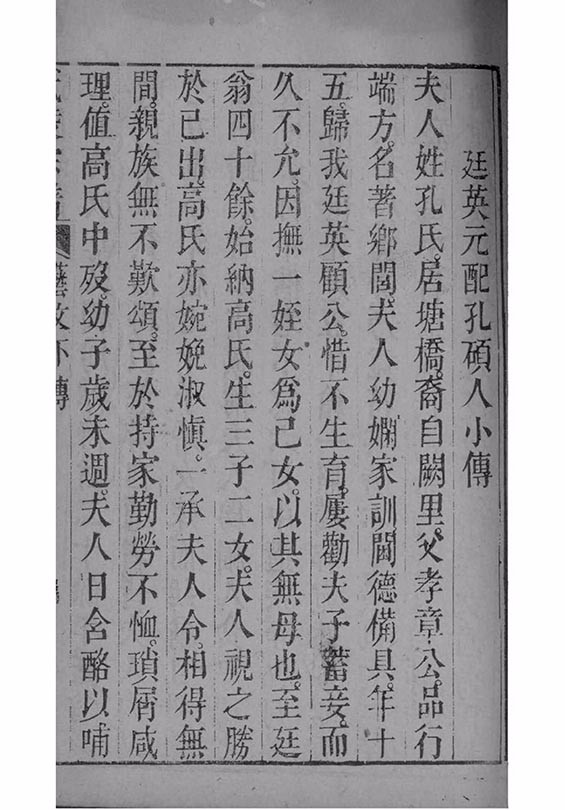 廷英元配孔碩人小傳
夫人姓孔氏。居塘橋。裔自闕里。父孝章公。品行
端方。名著鄉閭。夫人幼嫻家訓。閫德備具。年十
五。歸我廷英顧公。惜不生育。屢勸夫子蓄妾。而
久不允。因撫一姪女爲己女。以其無母也。至廷
翁四十餘。始納高氏。生三子二女。夫人視之勝
於已出。高氏亦婉娩淑慎。一承夫人令。相得無
間。親族無不歎頌。至於持家勤勞不恤。瑣屑咸
理。値高氏中歿。幼子歲未週。夫人日含酪以哺
藝文 小傳